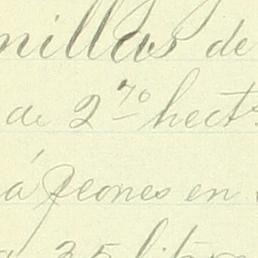 millas de
de 2 70 hects
á peones en
35 litros